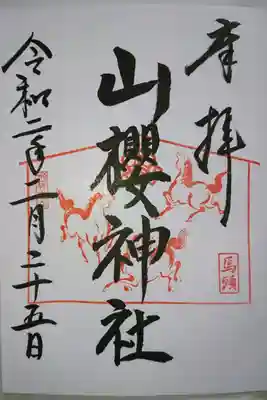 奉拝
山櫻神社
馬頭
令和二年二月二十五日